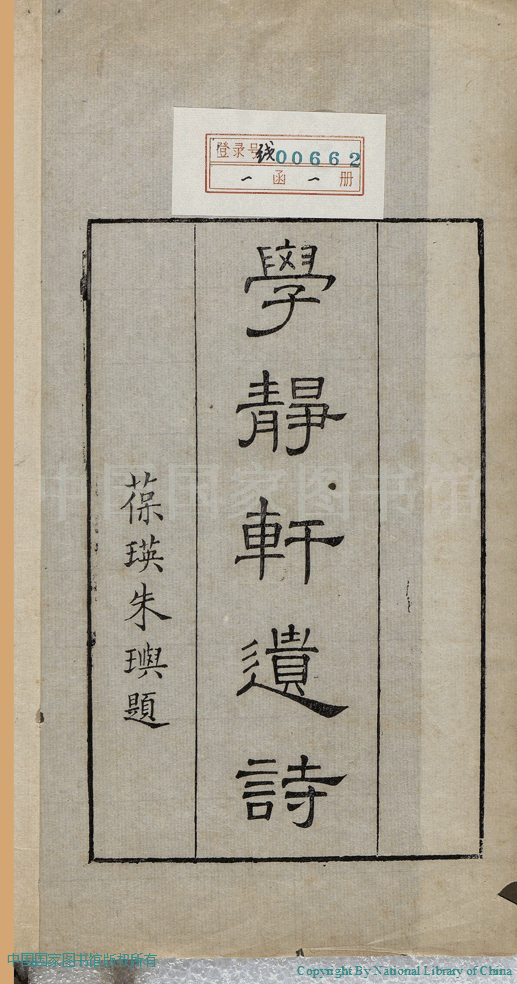 登录号 线00662
一函一册
學靜軒遺詩
葆瑛朱璵題
中国国家图书馆
中国国家图书馆版权所有
Copyright By National Library of China